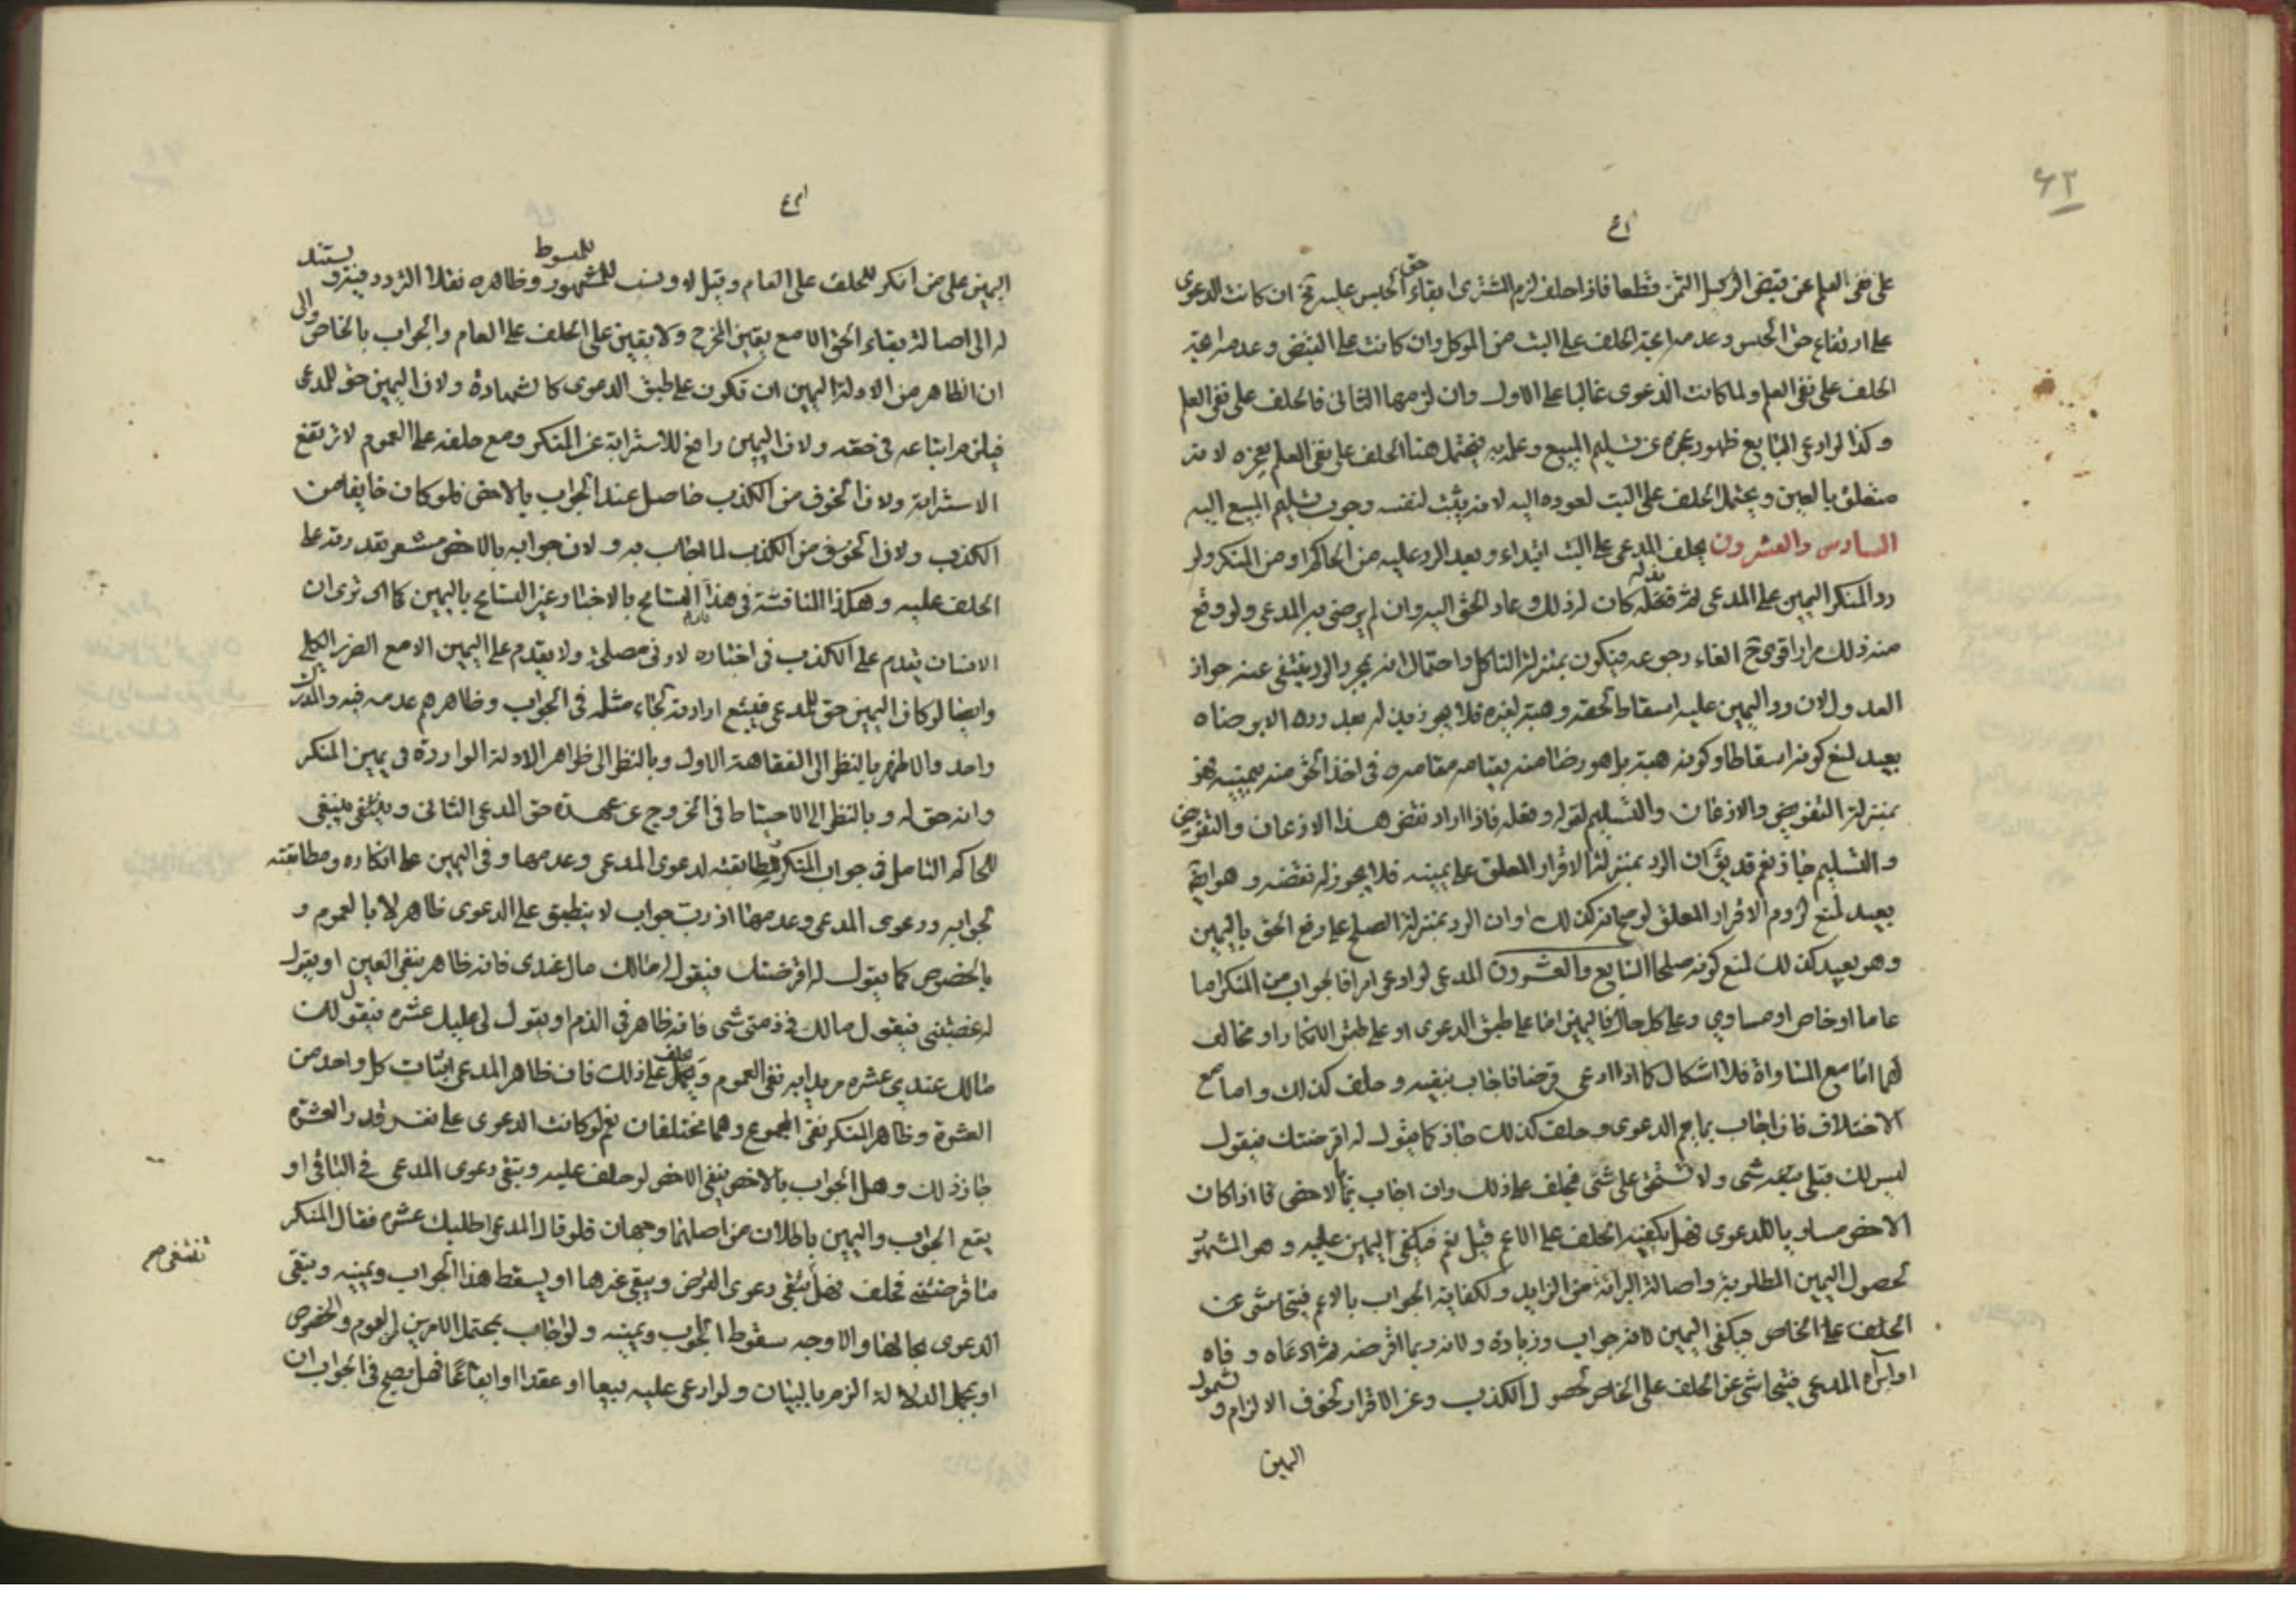 ٤٣
على نفي العلم عن قبض الوكيل الثمن قطعا فاذا حلف لزم المشتري ابقاء حق الحبس عليه تخ ان كانت الدعوى
على ارتفاع حق الحبس وعدمه اعتبر الحلف على البت من الموكل وان كانت على القبض وعدمه اعتبر
الحلف على نفي العلم ولما كانت الدعوى غالبا على الاول وان لزمها الثاني فالحلف على نفي العلم
وكذا لو ادعى البايع ظهور عجزه عن تسليم المبيع وعلمه به فيحتمل هنا الحلف على نفي العلم بعجزه لانه
متعلق بالعين ويحتمل الحلف على البت لعوده اليه لانه يثبت لنفسه وجوب تسليم المبيع اليه
السادس والعشرون يحلف المدعي على البت ابتداء وبعد الرد عليه من الحاكم او من المنكر ولو
رد المنكر اليمين على المدعي ثم بذله كان له ذلك وعاد الحق اليه وان لم يرض به المدعي ولو وقع
منه ذلك مرارا قوي ح الغاء رجوعه فيكون بمنزلة الناكل واحتمال انه بمجرد الرد ينتفي عنه جواز
العدول لان رد اليمين عليه اسقاط لحقه وهبة لغيره فلا يجوز بذله له بعد رده الا برضاه
بعيد لمنع كونه اسقاطا وكونه هبة بل هو رضا منه بقيامه مقامه في اخذ الحق منه بيمينه فهو
بمنزلة التفويض والاذعان والتسليم لقوله وفعله فاذا اراد نقض هذا الاذعان والتفويض
والتسليم جاز نعم قد يق ان الرد بمنزلة الاقرار المعلق على يمينه فلا يجوز له نقضه وهو ايضا
بعيد لمنع لزوم الاقرار المعلق لو صح انه كذلك او ان الرد بمنزلة الصلح على دفع الحق باليمين
وهو بعيد كذلك لمنع كونه صلحا السابع والعشرون المدعي لو ادعى امرا فالجواب من المنكر اما
عاما او خاص او مساوي وعلى كل حال فاليمين اما على طبق الدعوى او على طبق الانكار او مخالف
لهما اما مع المساواة فلا اشكال كما اذا ادعى قرضا فاجاب بنفيه وحلف كذلك واما مع
الاختلاف فان اجاب بما يعم الدعوى وحلف كذلك جاز كما يقول له اقرضتك فيقول
ليس لك قبلي شيء ولا تستحق علي شيء فيحلف على ذلك وان اجاب بالاخص فاذا كان
الاخص مساويا للدعوى فهل يكفيه الحلف على الاعم قيل نعم فيكفي اليمين عليه وهو المشهور
لحصول اليمين المطلوبة واصالة البرائة من الزايد ولكفاية الجواب بالاعم فيتحاشى عن
الحلف على الخاص فيكفي اليمين لانه جواب وزيادة ولانه ربما اقرضه ثم ادعاه وفاه
او ابرأه المدعي فيتحاشى عن الحلف على الخاص لحصول الكذب وعن الاقرار لخوف الالزام وشمول
اليمين
اليمين على من انكر للحلف على العام وقيل لا ونسب للمبسوط وظاهره نقلا التردد فيه ويستند
له الى اصالة بقاء الحق الا مع يقين المخرج ولا يقين على الحلف على العام والجواب بالخاص والى
ان الظاهر من الادلة اليمين ان تكون على طبق الدعوى كالشهادة ولان اليمين حق للمدعي
فيلزم اتباعه في حقه ولان اليمين رافع للاسترابة عن المنكر ومع حلفه على العموم لا ترتفع
الاسترابة ولان الخوف من الكذب حاصل عند الجواب بالاخص فلو كان خايفا من
الكذب ولان الخوف من الكذب لما اجاب به ولان جوابه بالاخص مشعر بقدرته على
الحلف عليه وهكذا المناقشة في هذا التسامح بالاخبار وغير التسامح باليمين كما ترى ان
الانسان يقدم على الكذب في اخباره لادنى مصلحة ولا يقدم على اليمين الا مع الضرر الكلي
وايضا لو كان اليمين حق للمدعي فيتبع ارادته لجاء مثله في الجواب وظاهرهم عدمه فيه والمدرك
واحد والاظهر بالنظر الى الفقاهة الاول وبالنظر الى ظواهر الادلة الواردة في يمين المنكر
وانه حق له وبالنظر الى الاحتياط في الخروج عن عهدة حق المدعي الثاني وينبغي
للحاكم التامل في جواب المنكر ومطابقته لدعوى المدعي وعدمها وفي اليمين على انكاره ومطابقته
لجوابه ودعوى المدعي وعدمها اذ رب جواب لا ينطبق على الدعوى ظاهرا لا بالعموم و
بالخصوص كما يقول له اقرضتك فيقول له مالك مال عندي فانه ظاهر بنفي العين او يقول
له غصبتني فيقول مالك في ذمتي شيء فانه ظاهر في الذمم او يقول لي عليك عشرة فيقول ليس
مالك عندي عشرة مريدا به نفي العموم ويحلف على ذلك فان ظاهر المدعي اثبات كل واحد من
العشرة وظاهر المنكر نفي المجموع وهما مختلفان نعم لو كانت الدعوى على نفس قدر العشرة
جاز ذلك وهل الجواب بالاخص ينفي الاخص لو حلف عليه ويبقى دعوى المدعي في الباقي او
يقع الجواب واليمين باطلان من اصلهما وجهان فلو قال المدعي اطلبك عشرة فقال المنكر
ما اقرضتني فحلف فهل تنتفي دعوى القرض ويبقى غيرها او يسقط هذا الجواب ويمينه وتبقى
الدعوى بحالها والاوجه سقوط الجواب ويمينه ولو اجاب بمحتمل الامرين العموم والخصوص
او بمجمل الدلالة الزم بالبيان ولو ادعى عليه بيعا او عقدا او ايقاعا فهل يصح في الجواب ان